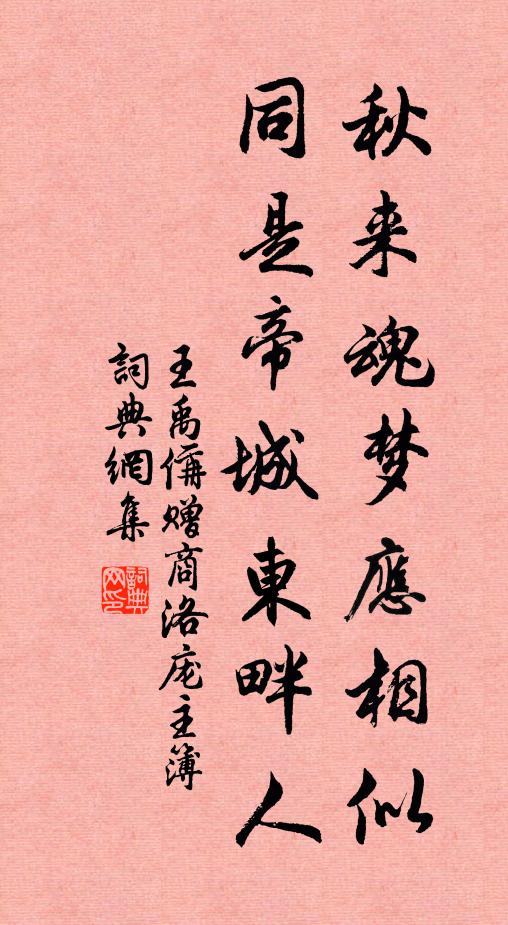 秋来魂梦應相似
同是帝城東畔人
王禹偁贈商洛庞主簿
詞典網集
詞典网印